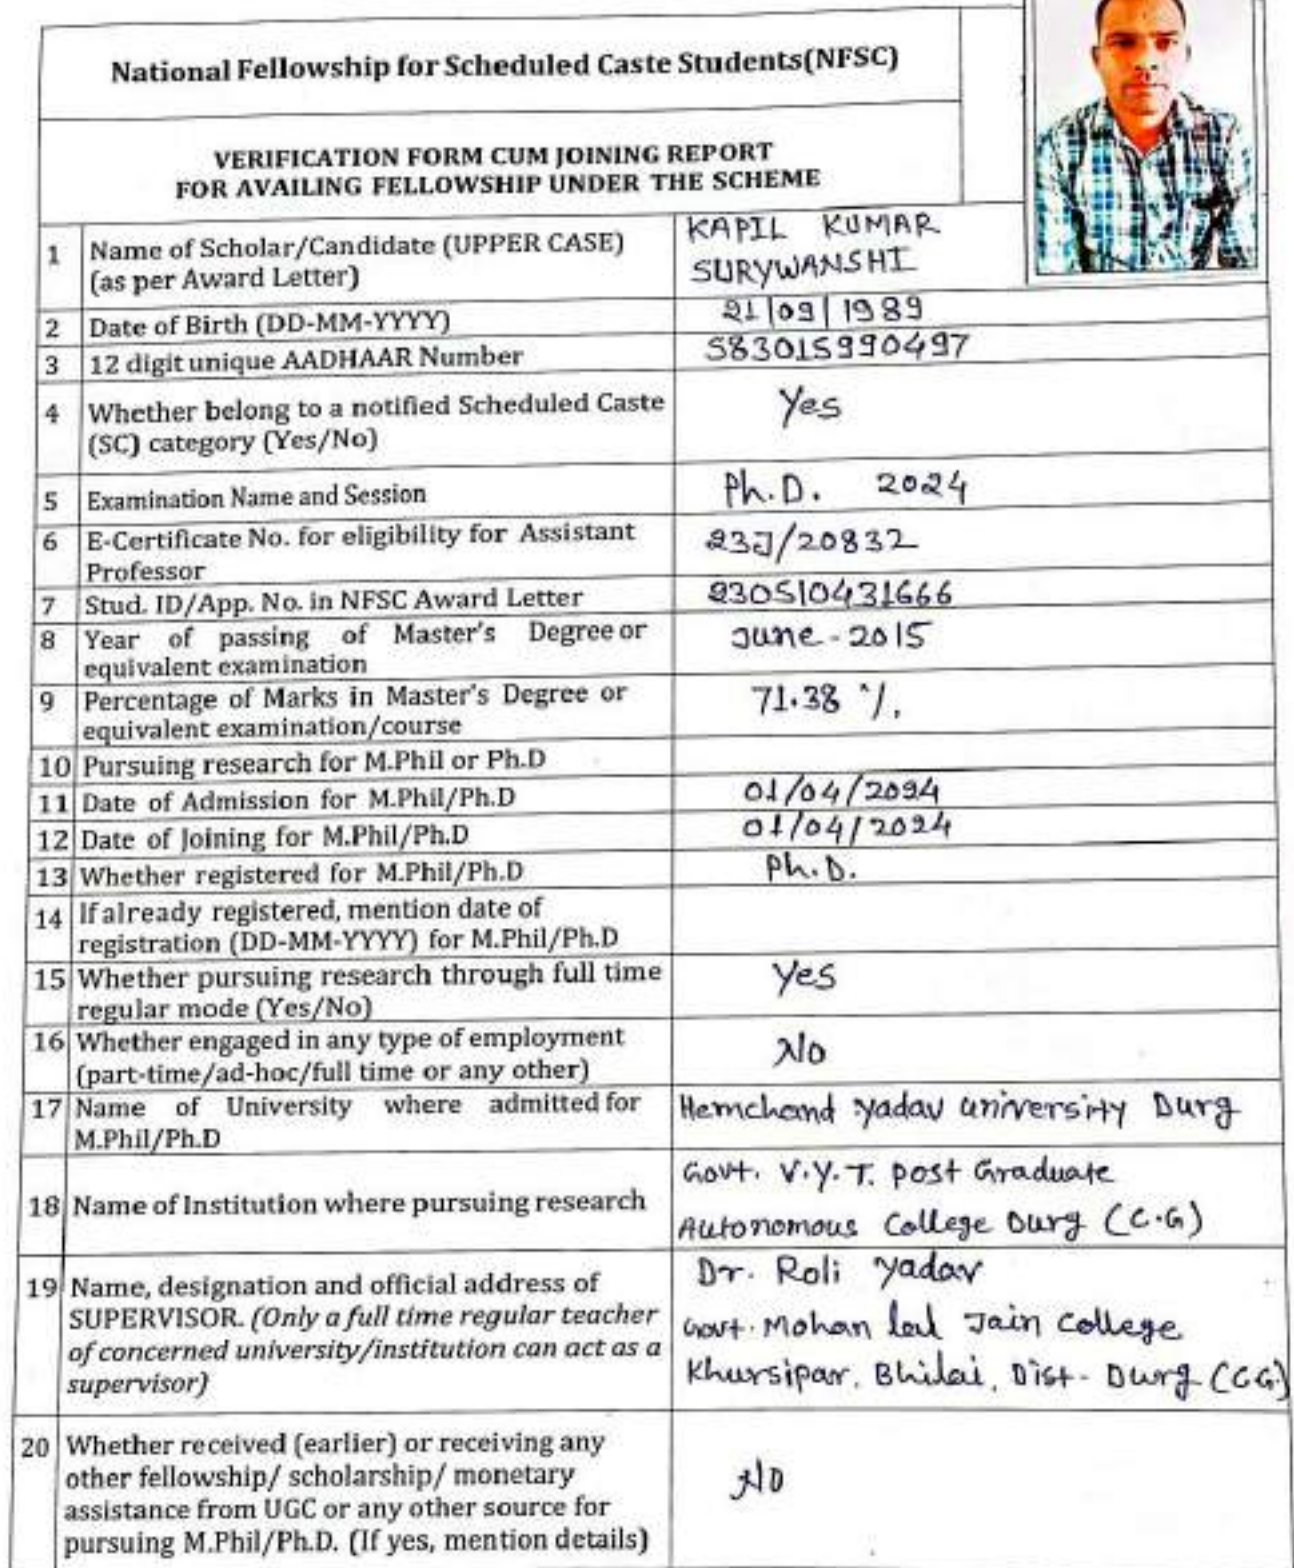 National Fellowship for Scheduled Caste Students(NFSC)
VERIFICATION FORM CUM JOINING REPORT
FOR AVAILING FELLOWSHIP UNDER THE SCHEME
1 Name of Scholar/Candidate (UPPER CASE) KAPIL KUMAR
(as per Award Letter) SURYWANSHI
2 Date of Birth (DD-MM-YYYY) 21/09/1989
3 12 digit unique AADHAAR Number 583015990497
4 Whether belong to a notified Scheduled Caste Yes
(SC) category (Yes/No)
5 Examination Name and Session Ph.D. 2024
6 E-Certificate No. for eligibility for Assistant 23J/20832
Professor
7 Stud. ID/App. No. in NFSC Award Letter 230510431666
8 Year of passing of Master's Degree or June-2015
equivalent examination
9 Percentage of Marks in Master's Degree or 71.38 %.
equivalent examination/course
10 Pursuing research for M.Phil or Ph.D
11 Date of Admission for M.Phil/Ph.D 01/04/2024
12 Date of Joining for M.Phil/Ph.D 01/04/2024
13 Whether registered for M.Phil/Ph.D Ph.D.
14 If already registered, mention date of
registration (DD-MM-YYYY) for M.Phil/Ph.D
15 Whether pursuing research through full time Yes
regular mode (Yes/No)
16 Whether engaged in any type of employment No
(part-time/ad-hoc/full time or any other)
17 Name of University where admitted for Hemchand yadav university Durg
M.Phil/Ph.D
18 Name of Institution where pursuing research Govt. V.Y.T. post Graduate
Autonomous College Durg (C.G)
19 Name, designation and official address of Dr. Roli yadav
SUPERVISOR. (Only a full time regular teacher Govt. Mohan lal Jain College
of concerned university/institution can act as a Khursipar, Bhilai, Dist- Durg (CG)
supervisor)
20 Whether received (earlier) or receiving any
other fellowship/ scholarship/ monetary No
assistance from UGC or any other source for
pursuing M.Phil/Ph.D. (If yes, mention details)